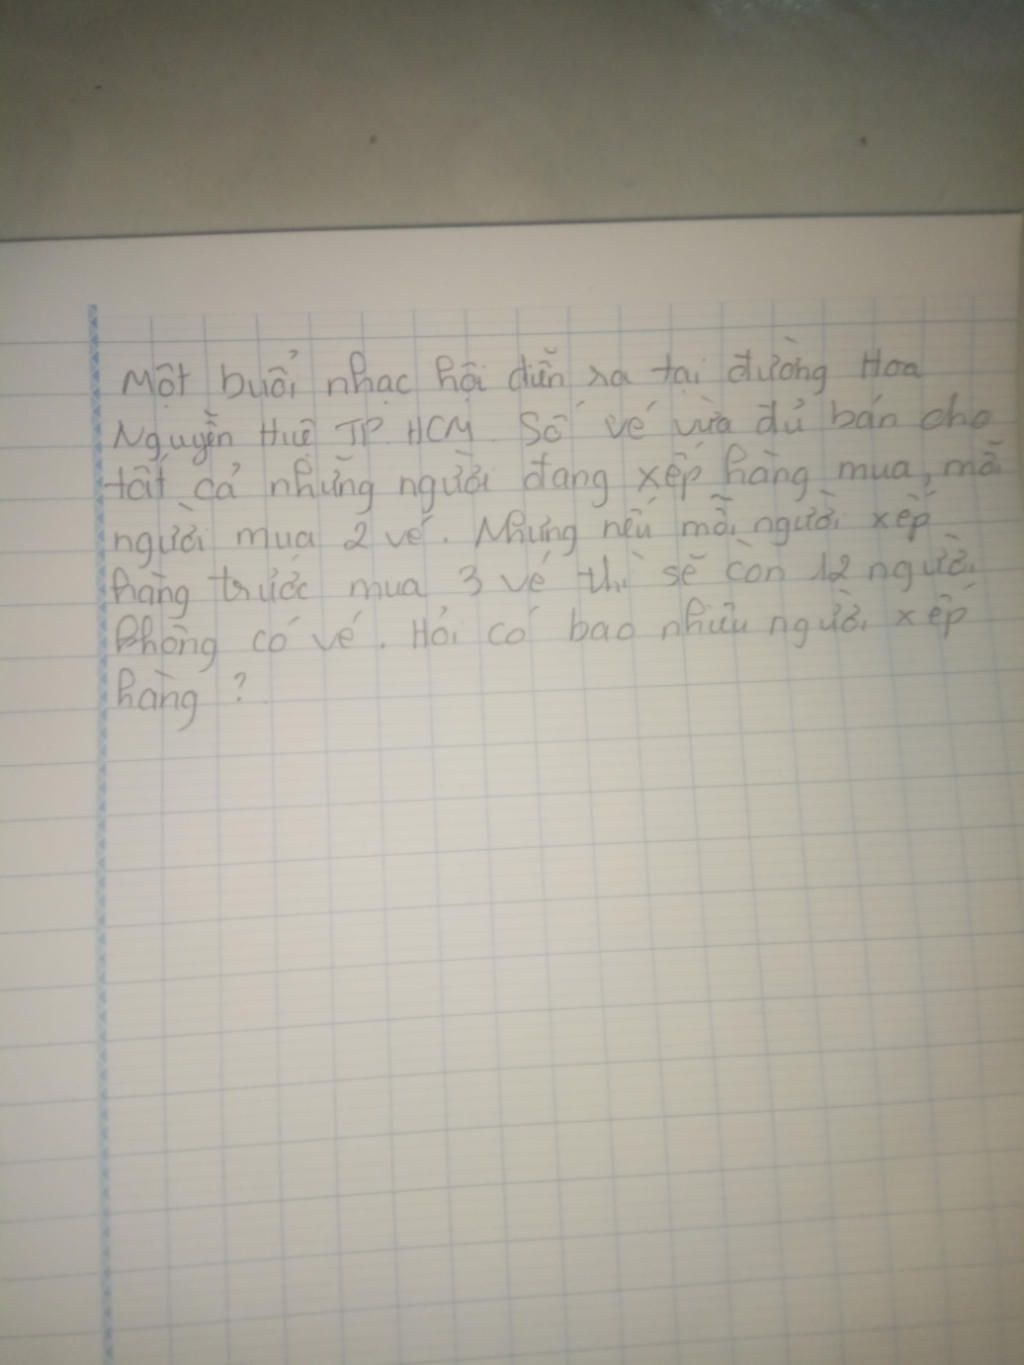 Một buổi nhạc hội diễn ra tại đường Hoa
Nguyễn Huệ TP. HCM. Số vé vừa đủ bán cho
tất cả những người đang xếp hàng mua, mỗi
người mua 2 vé. Nhưng nếu mỗi người xếp
hàng trước mua 3 vé thì sẽ còn 12 người
không có vé. Hỏi có bao nhiêu người xếp
hàng ?